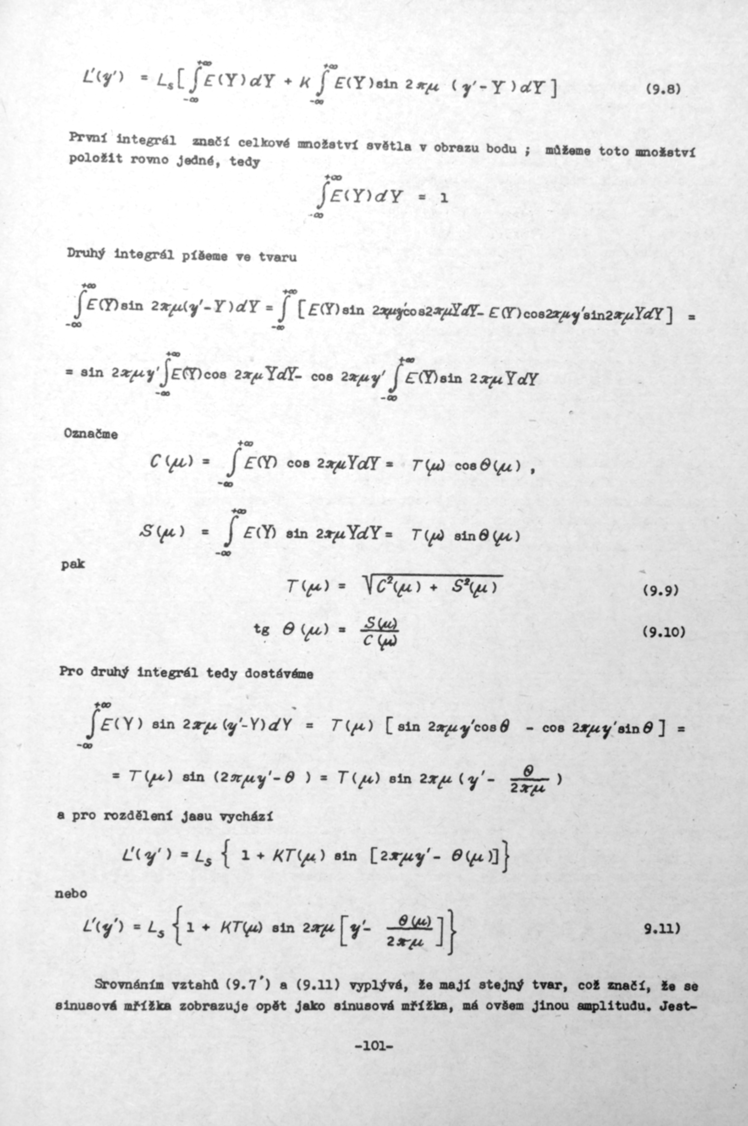 L'(y') = L_s [ ∫_{-∞}^{+∞} E(Y)dY + K ∫_{-∞}^{+∞} E(Y)sin 2πμ (y'-Y)dY ] (9.8)
První integrál značí celkové množství světla v obrazu bodu ; můžeme toto množství
položit rovno jedné, tedy
∫_{-∞}^{+∞} E(Y)dY = 1
Druhý integrál píšeme ve tvaru
∫_{-∞}^{+∞} E(Y)sin 2πμ(y'-Y)dY = ∫_{-∞}^{+∞} [E(Y)sin 2πμy'cos2πμYdY- E(Y)cos2πμy'sin2πμYdY] =
= sin 2πμy' ∫_{-∞}^{+∞} E(Y)cos 2πμYdY- cos 2πμy' ∫_{-∞}^{+∞} E(Y)sin 2πμYdY
Označme
C(μ) = ∫_{-∞}^{+∞} E(Y) cos 2πμYdY = T(μ) cosθ(μ) ,
S(μ) = ∫_{-∞}^{+∞} E(Y) sin 2πμYdY = T(μ) sinθ(μ)
pak
T(μ) = √(C²(μ) + S²(μ)) (9.9)
tg θ(μ) = S(μ)/C(μ) (9.10)
Pro druhý integrál tedy dostáváme
∫_{-∞}^{+∞} E(Y) sin 2πμ(y'-Y)dY = T(μ) [sin 2πμy'cosθ - cos 2πμy'sinθ] =
= T(μ) sin (2πμy'-θ ) = T(μ) sin 2πμ (y'- θ/2πμ )
a pro rozdělení jasu vychází
L'(y') = L_s { 1 + KT(μ) sin [2πμy'- θ(μ)]}
nebo
L'(y') = L_s {1 + KT(μ) sin 2πμ [y'- θ(μ)/2πμ]} 9.11)
Srovnáním vztahů (9.7') a (9.11) vyplývá, že mají stejný tvar, což značí, že se
sinusová mřížka zobrazuje opět jako sinusová mřížka, má ovšem jinou amplitudu. Jest-
-101-